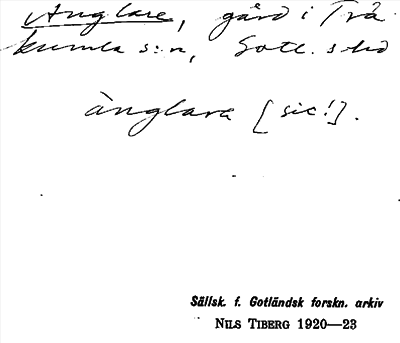 Anglare, gård i Trå
kumla s:n, Gotl. s hd
ànglara [sic!].
Sällsk. f. Gotländsk forskn. arkiv
NILS TIBERG 1920—23